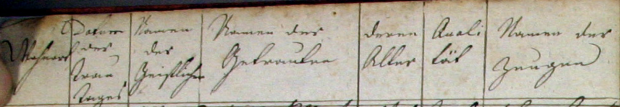 Wohnort
Datum
des
Trau
Tages
Namen
des
Geistlichen
Namen der
Getrauten
deren
Alter
Quali
tät
Namen der
Zeugen